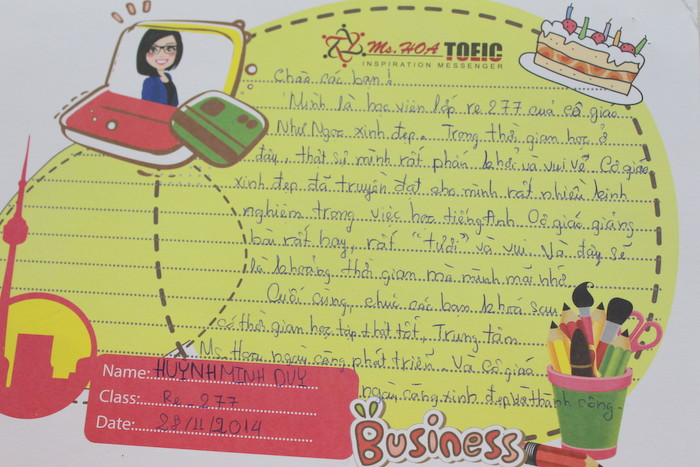 Ms. HOA TOEIC
INSPIRATION MESSENGER
Chào các bạn!
Mình là học viên lớp re 277 của cô giáo
Như Ngọc xinh đẹp. Trong thời gian học ở
đây, thật sự mình rất phấn khởi và vui vẻ. Cô giáo
xinh đẹp đã truyền đạt cho mình rất nhiều kinh
nghiệm trong việc học tiếng Anh. Cô giáo giảng
bài rất hay, rất "tươi" và vui. Và đây sẽ
là khoảng thời gian mà mình mãi nhớ.
Cuối cùng, chúc các bạn khoá sau
có thời gian học tập thật tốt, Trung tâm
Ms. Hoa ngày càng phát triển. Và cô giáo
ngày càng xinh đẹp và thành công.
Name: HUỲNH MINH DUY
Class: Re_277
Date: 28/11/2014
Business